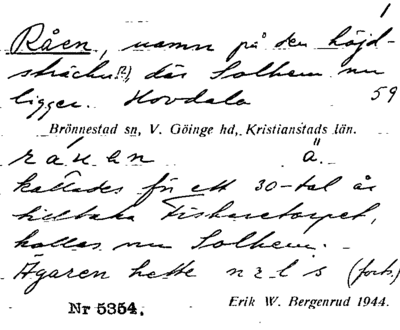 1
Råen, namn på den höjd-
sträcka(?), där Solhem nu
ligger. Hovdala 59
Brönnestad sn, V. Göinge hd, Kristianstads län.
råen ä.
kallades för ett 30-tal år
tillbaka Fiskaretorpet,
kallas nu Solhem. -
Ägaren hette nels (forts.)
Nr 5354. Erik W. Bergenrud 1944.